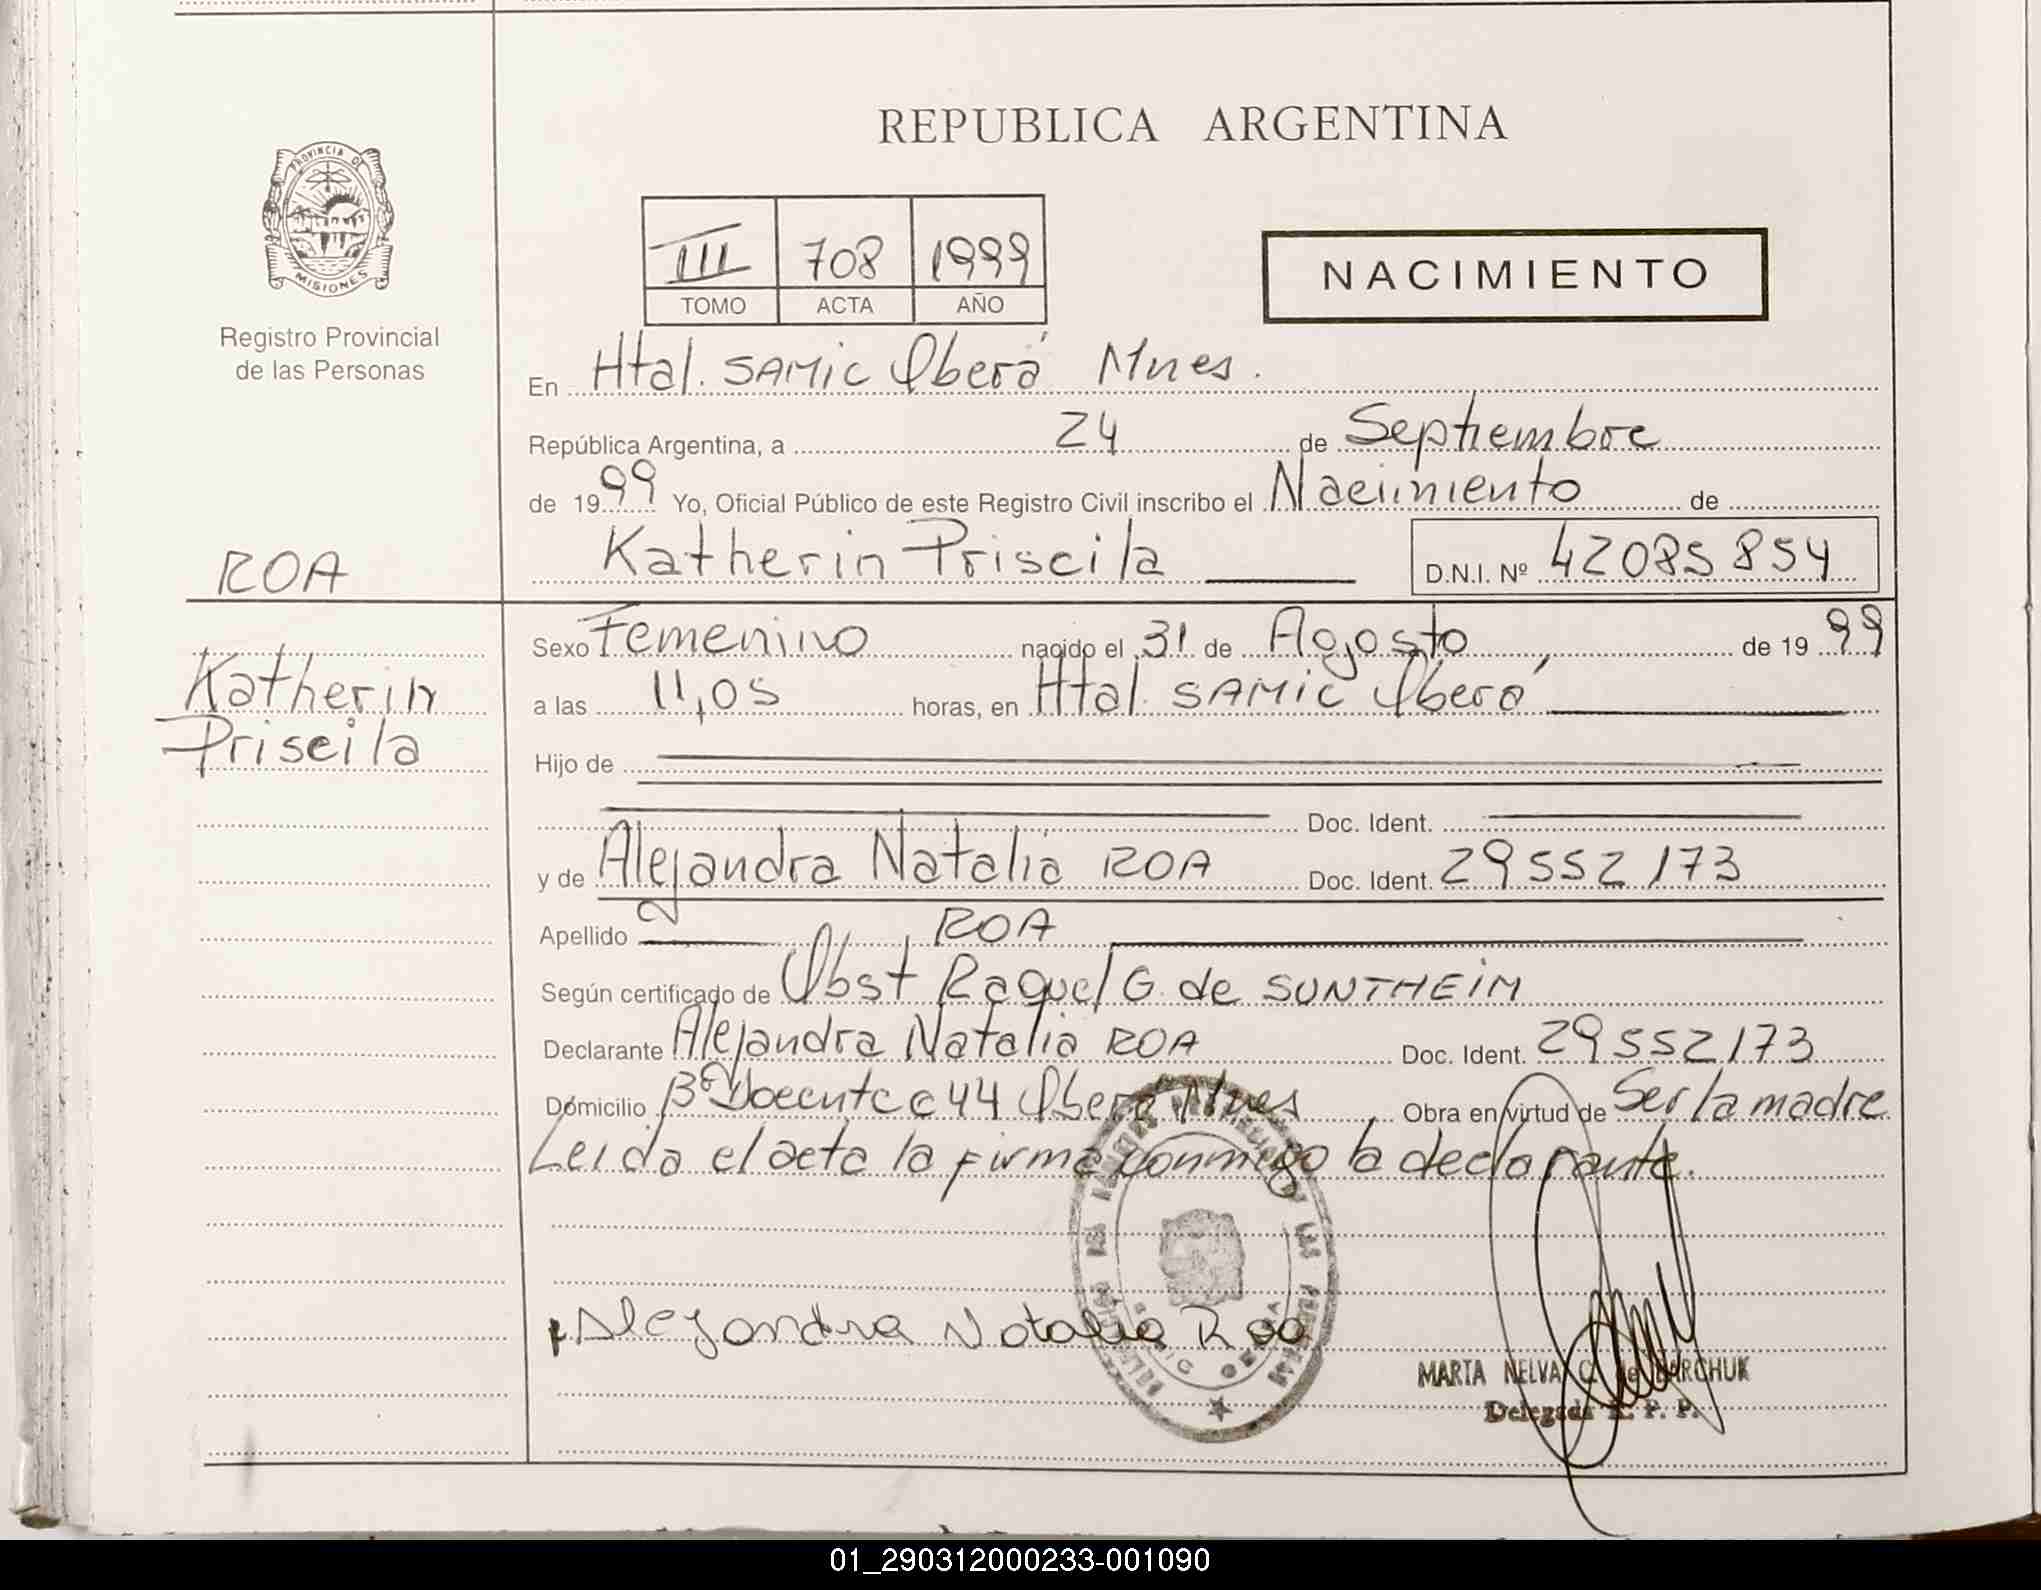 REPUBLICA ARGENTINA
PROVINCIA D
MISIONES
Registro Provincial
de las Personas
III 708 1999
TOMO ACTA AÑO
NACIMIENTO
En Htal. SAMIC Oberá Mnes.
República Argentina, a 24 de Septiembre
de 1999 Yo, Oficial Público de este Registro Civil inscribo el Nacimiento de
Katherin Priscila D.N.I. Nº 42085854
ROA
Katherin
Priscila
Sexo Femenino nacido el 31 de Agosto de 1999
a las 11,05 horas, en Htal. SAMIC Oberá
Hijo de
Doc. Ident.
y de Alejandra Natalia ROA Doc. Ident. 29552173
Apellido ROA
Según certificado de Obst Raquel G. de SUNTHEIM
Declarante Alejandra Natalia ROA Doc. Ident. 29552173
Domicilio Bº Docente c 44 Oberá Mnes Obra en virtud de Ser la madre
Leida el acta la firma conmigo la declarante.
Alejandra Natalia Roa
MARTA NELVA C. de BARCHUK
Delegada R. P. P.
01_290312000233-001090